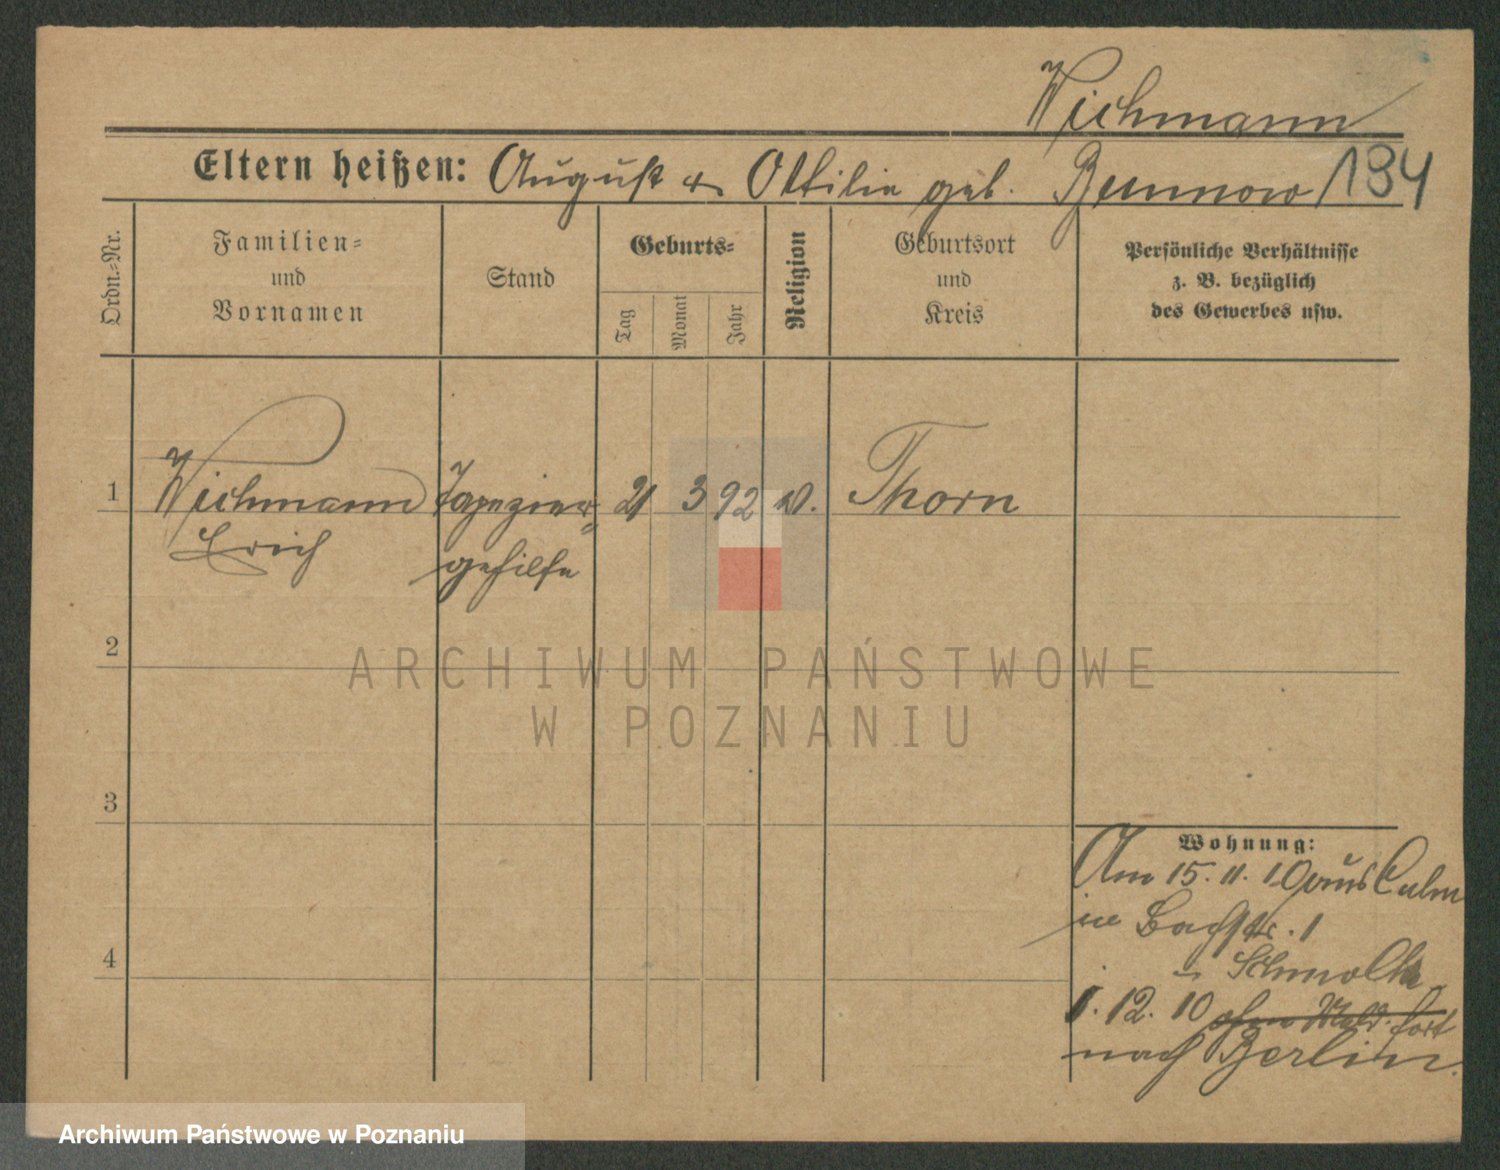 Wichmann
Eltern heißen: August u Ottilie geb. Brunnow 134
Ordn.=Nr.
Familien=
und
Vornamen
Stand
Geburts=
Tag
Monat
Jahr
Religion
Geburtsort
und
Kreis
Persönliche Verhältnisse
z. B. bezüglich
des Gewerbes usw.
1 Wichmann Tapezier= 21 3 92 Thorn
Erich gehilfe
2
3
4
Wohnung:
Am 15. 11. 10 aus Culm
in Bachstr. 1
1. 12. 10 ohne Meld. fort
nach Berlin.
ARCHIWUM PAŃSTWOWE
W POZNANIU
Archiwum Państwowe w Poznaniu